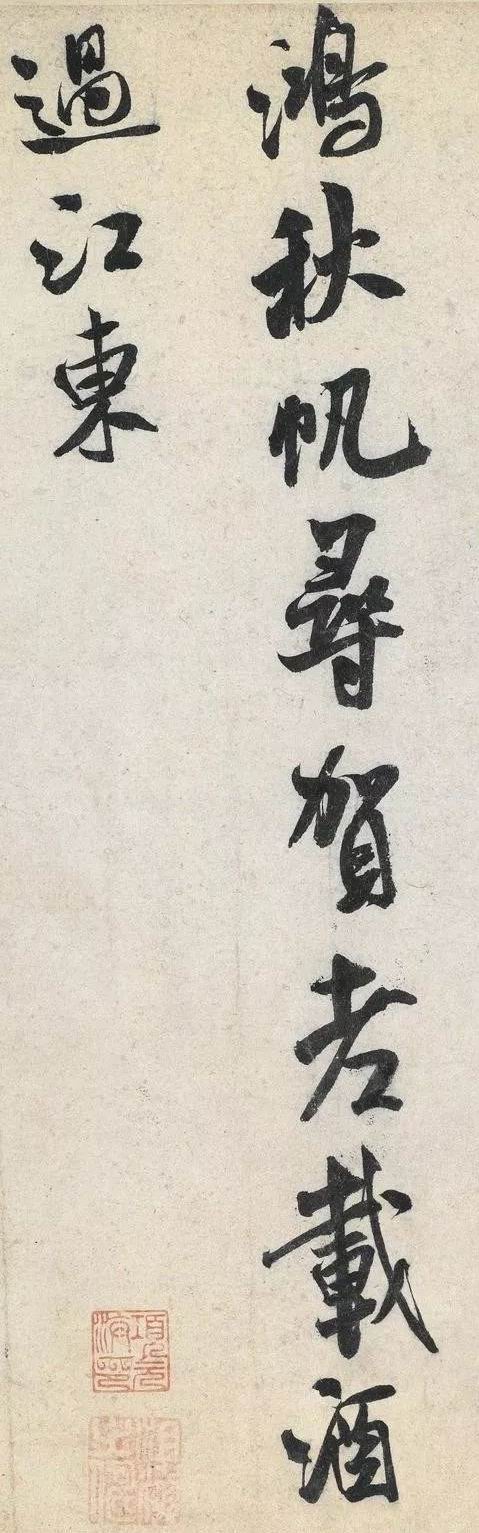 鴻秋帆尋賀老載酒
過江東